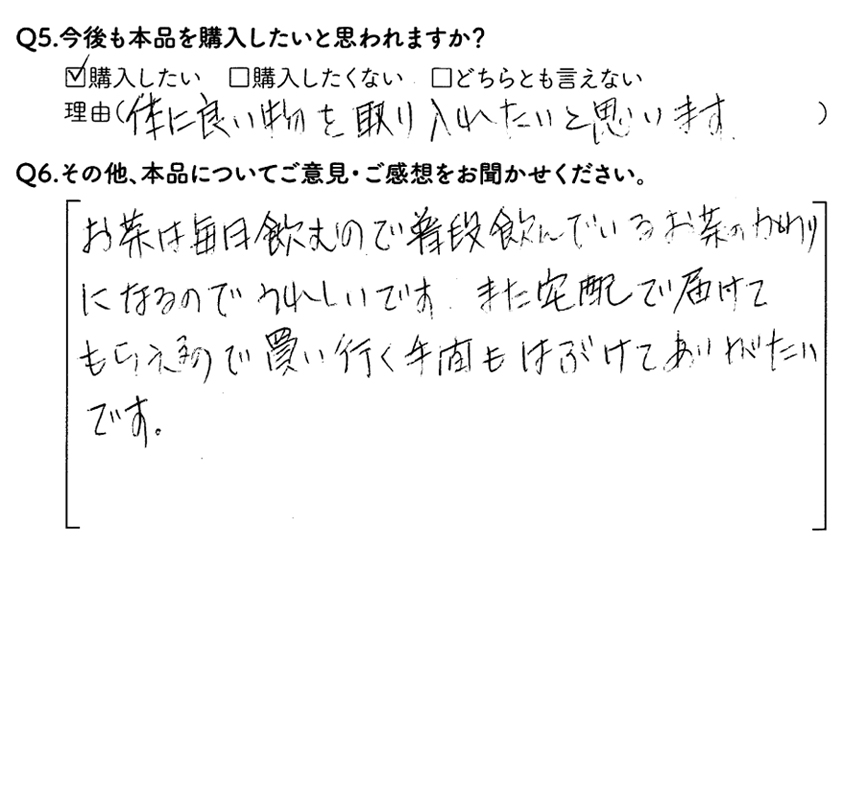 Q5.今後も本品を購入したいと思われますか?
☑購入したい □購入したくない □どちらとも言えない
理由(体に良い物を取り入れたいと思います )
Q6.その他、本品についてご意見・ご感想をお聞かせください。
お茶は毎日飲むので普段飲んでいるお茶のかわり
になるのでうれしいです。また宅配で届けて
もらえるので買い行く手間もはぶけてありがたい
です。